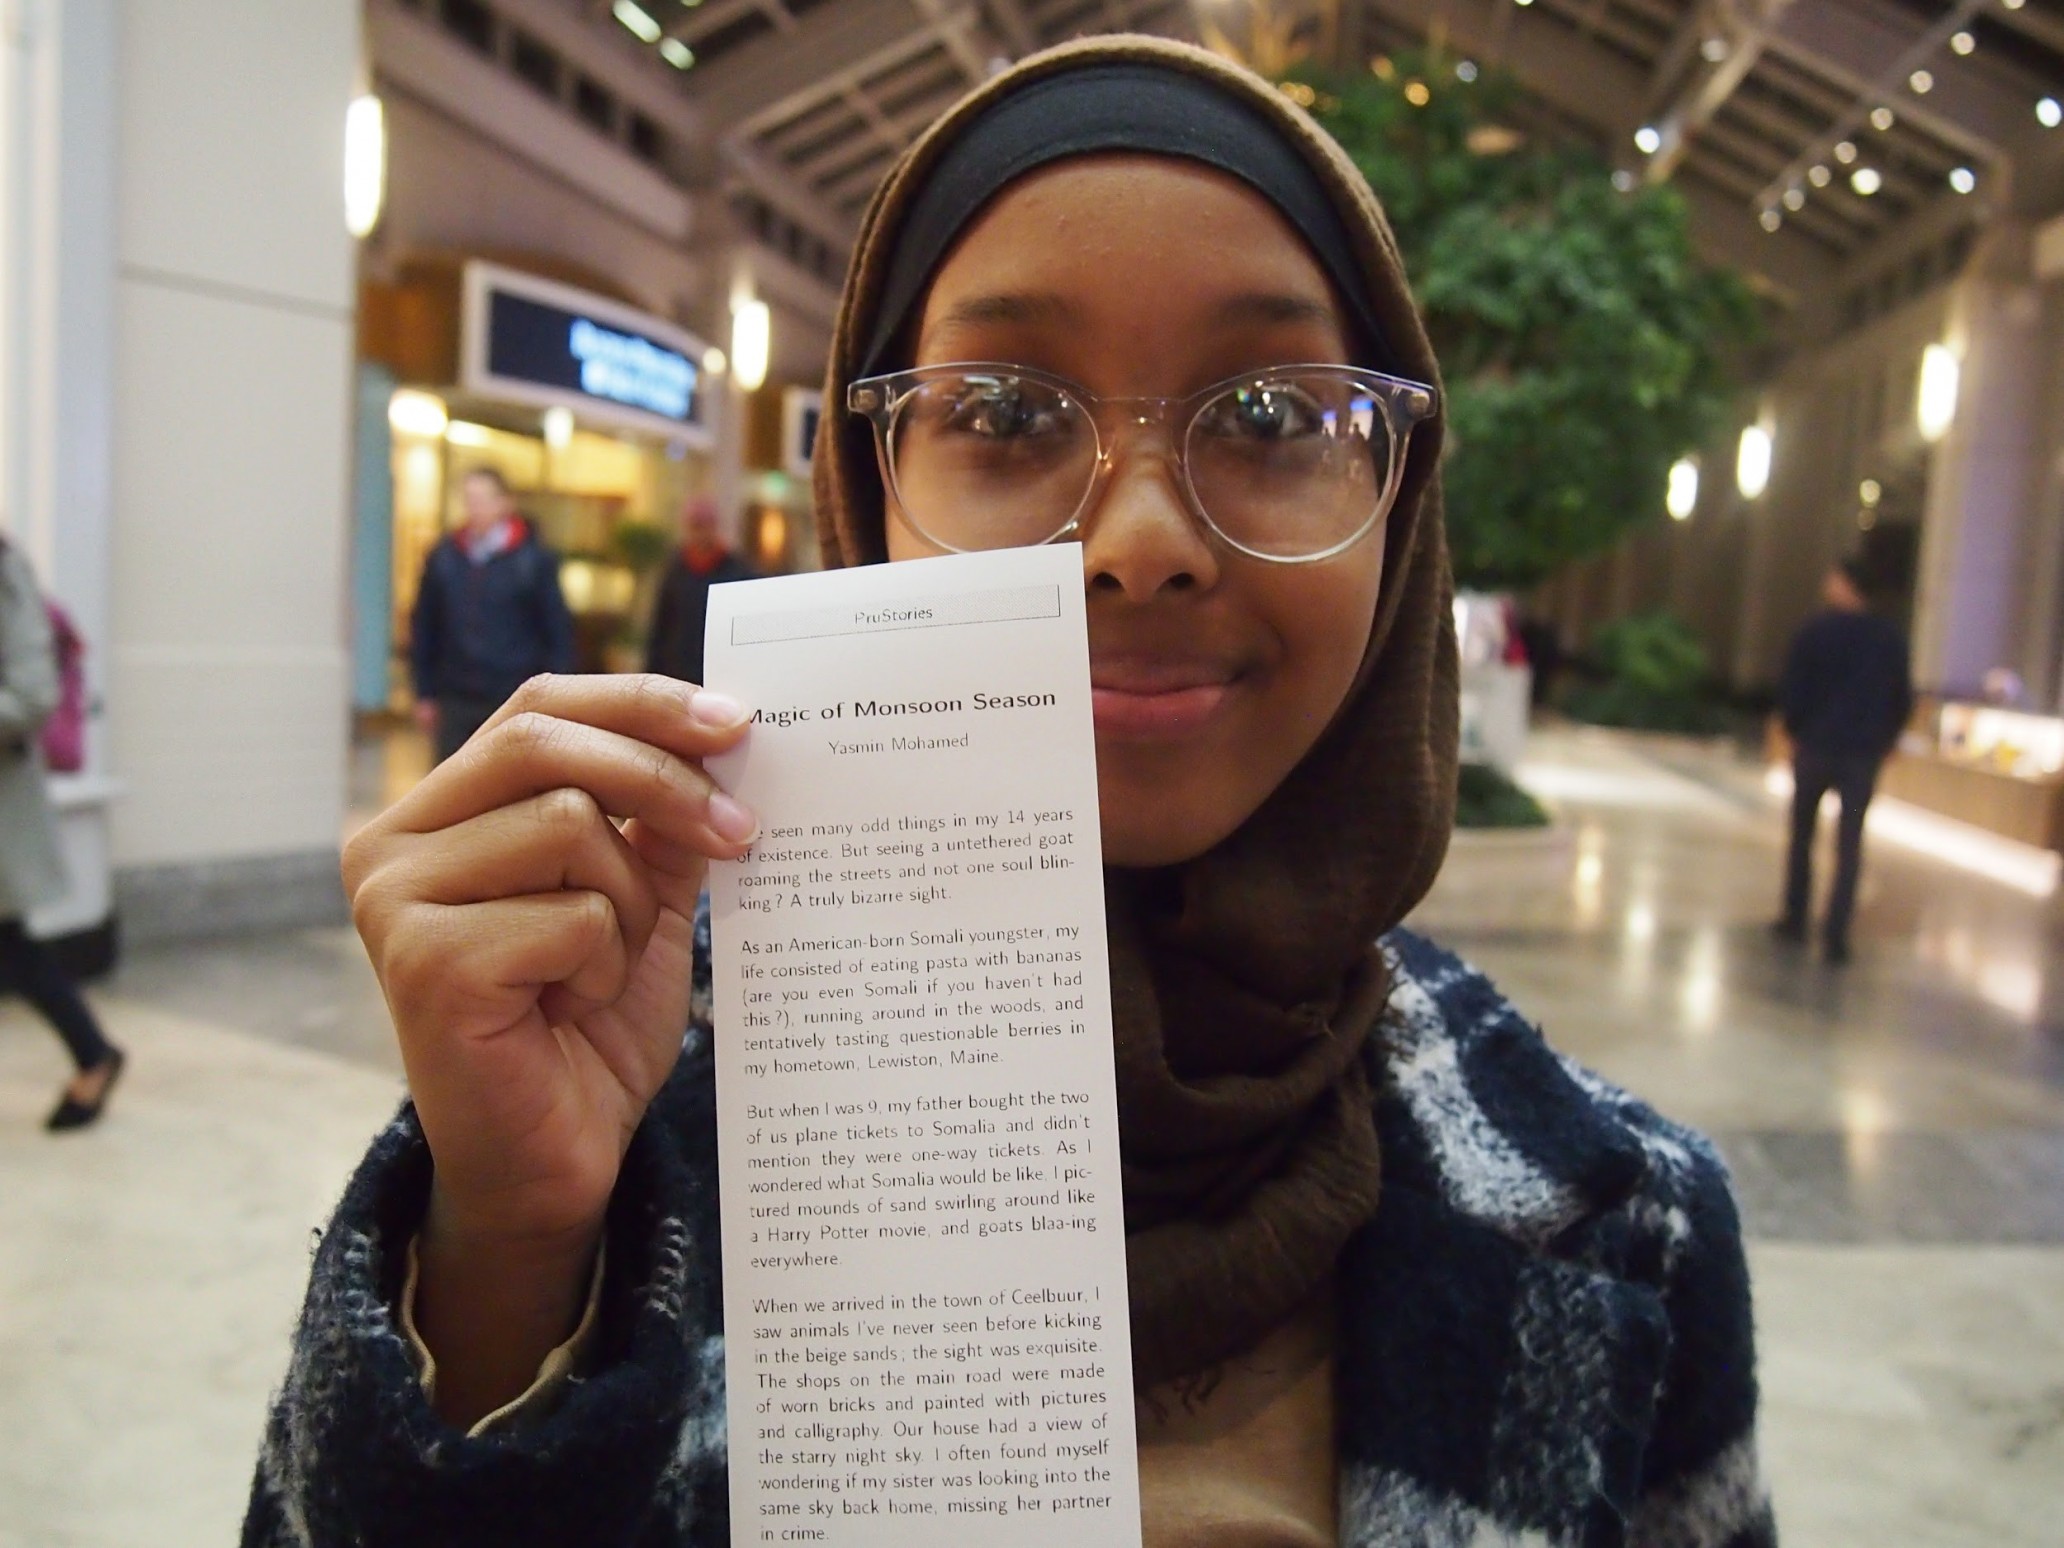 PruStories
Magic of Monsoon Season
Yasmin Mohamed
seen many odd things in my 14 years
of existence. But seeing a untethered goat
roaming the streets and not one soul blin-
king ? A truly bizarre sight.
As an American-born Somali youngster, my
life consisted of eating pasta with bananas
(are you even Somali if you haven't had
this ?), running around in the woods, and
tentatively tasting questionable berries in
my hometown, Lewiston, Maine.
But when I was 9, my father bought the two
of us plane tickets to Somalia and didn't
mention they were one-way tickets. As I
wondered what Somalia would be like, I pic-
tured mounds of sand swirling around like
a Harry Potter movie, and goats blaa-ing
everywhere.
When we arrived in the town of Ceelbuur, I
saw animals I've never seen before kicking
in the beige sands ; the sight was exquisite.
The shops on the main road were made
of worn bricks and painted with pictures
and calligraphy. Our house had a view of
the starry night sky. I often found myself
wondering if my sister was looking into the
same sky back home, missing her partner
in crime.